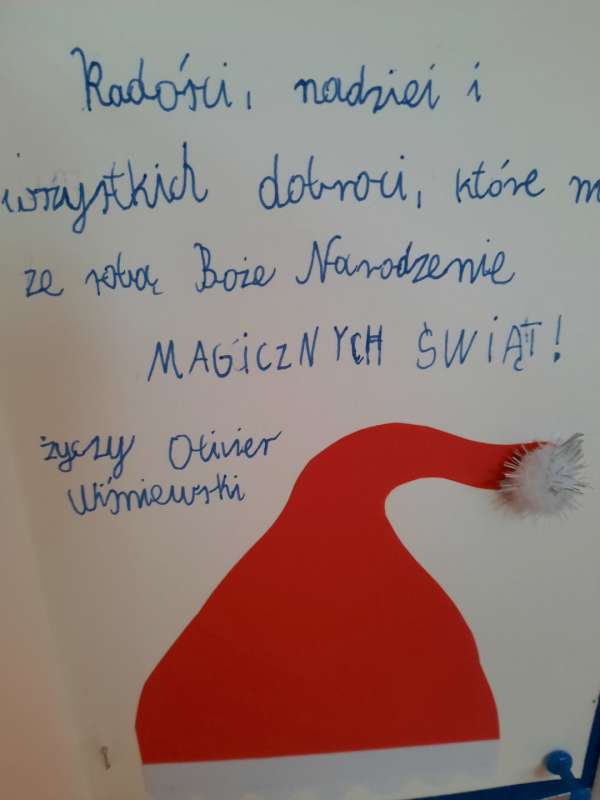 Radości, nadziei i
wszystkich dobroci, które
ze sobą Boże Narodzenie
MAGICZNYCH ŚWIĄT!
życzy Oliwier
Wiśniewski